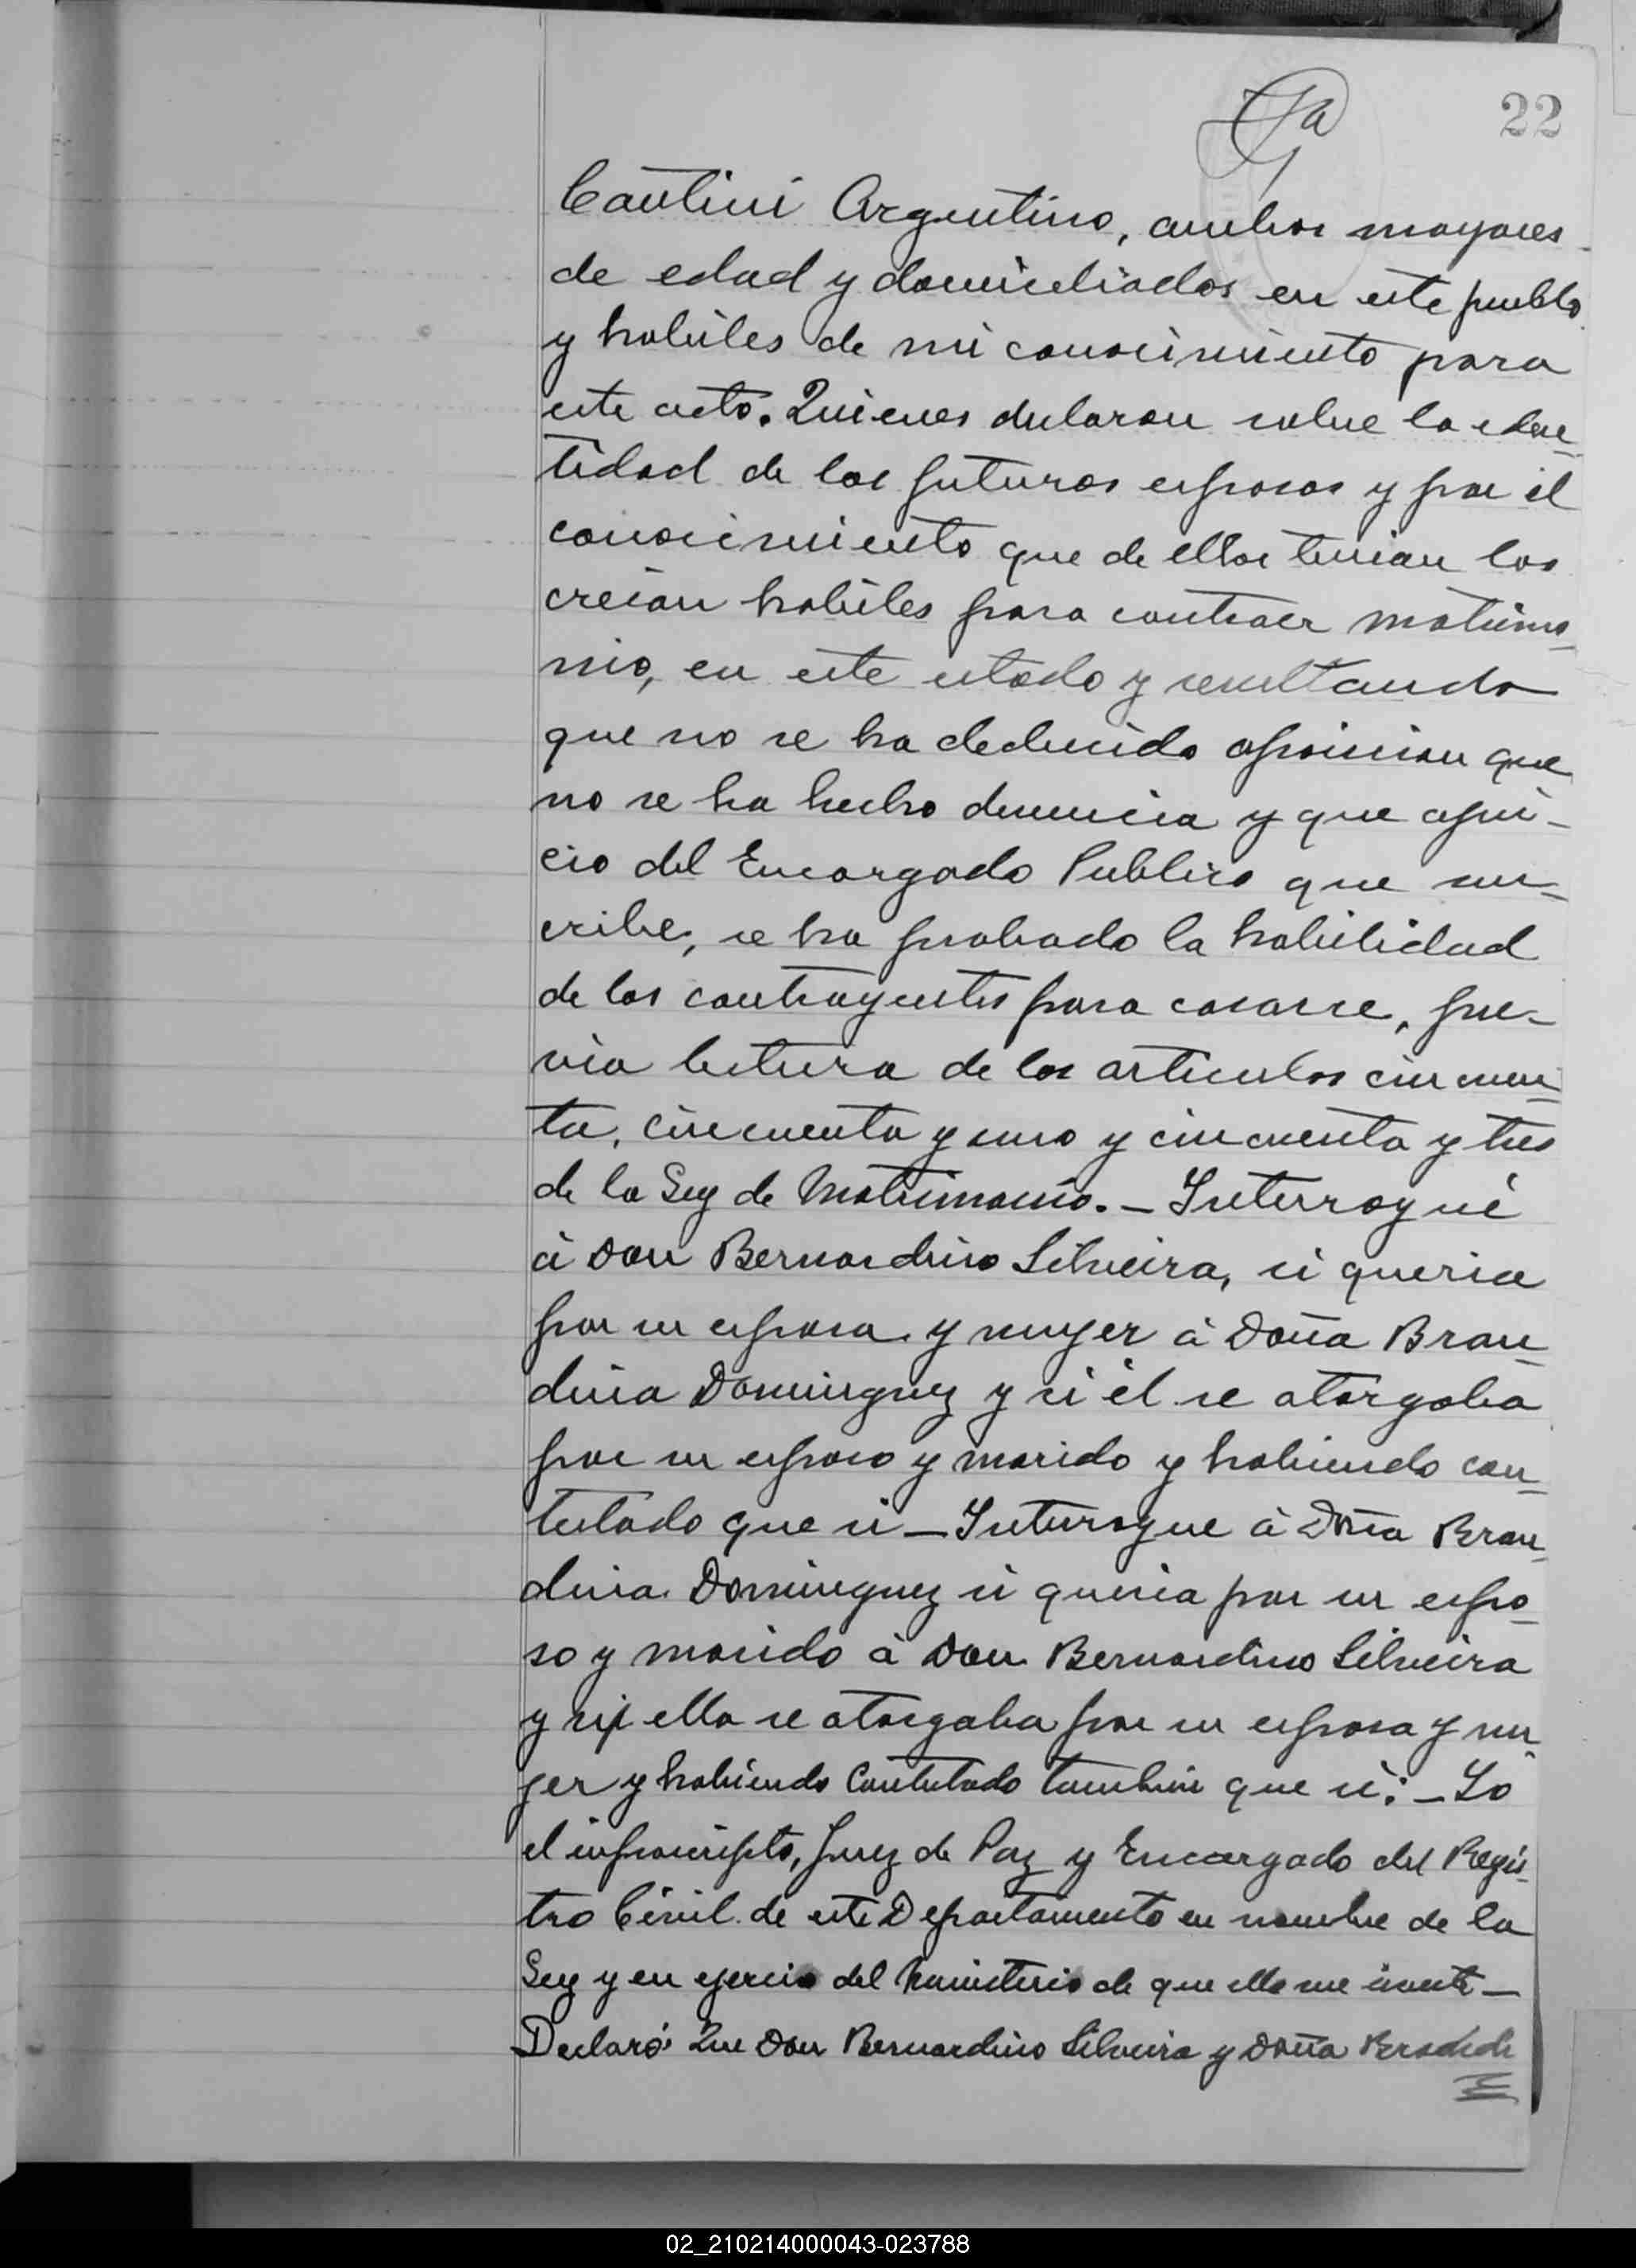 22
Cantini Argentino, ambos mayores
de edad y domiciliados en este pueblo
y habiles de mi conocimiento para
este acto. Quienes declaran sobre la iden-
tidad de los futuros esposos y por el
conocimiento que de ellos tenian los
creian habiles para contraer matrimo-
nio, en este estado y resultando
que no se ha deducido oposicion que
no se ha hecho denuncia y que ajui-
cio del Encargado Publico que sus-
cribe, se ha probado la habilidad
de los contrayentes para casarse, pre-
via lectura de los articulos cincuen-
ta, cincuenta y uno y cincuenta y tres
de la Ley de Matrimonio. - Interrogué
á Don Bernardino Silveira, si queria
por su esposa y muger á Doña Bran-
dina Dominguez y si él se otorgaba
por su esposo y marido y habiendo con-
testado que si - Interrogue á Doña Bran-
dina Dominguez si queria por su espo-
so y marido á Don Bernardino Silveira
y si ella se otorgaba por su esposa y mu-
ger y habiendo contestado tambien que si: - Yo
el infrascripto, Juez de Paz y Encargado del Regis-
tro Civil de este Departamento en nombre de la
Ley y en ejercio del Ministerio de que ella me inviste -
Declaró: Que Don Bernardino Silveira y Doña
02_210214000043-023788